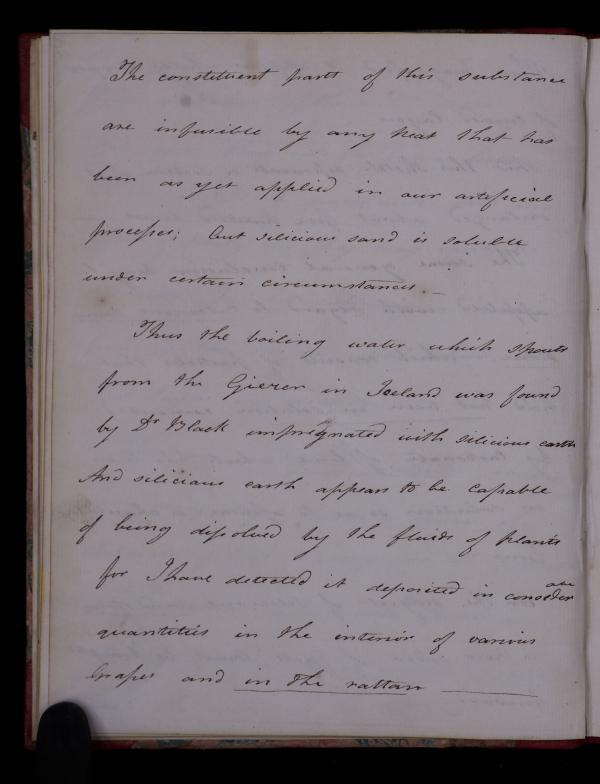 The constituent parts of this substance
are infusible by any heat that has
been as yet applied in our artificial
processes; but silicious sand is soluble
under certain circumstances. _
Thus the boiling water which spouts
from the Gierer in Iceland was found
by Dr Black impregnated with silicious earth
And silicious earth appears to be capable
of being dissolved by the fluids of plants
for I have detected it deposited in consider able
quantities in the interior of various
Grapes and in the rattan